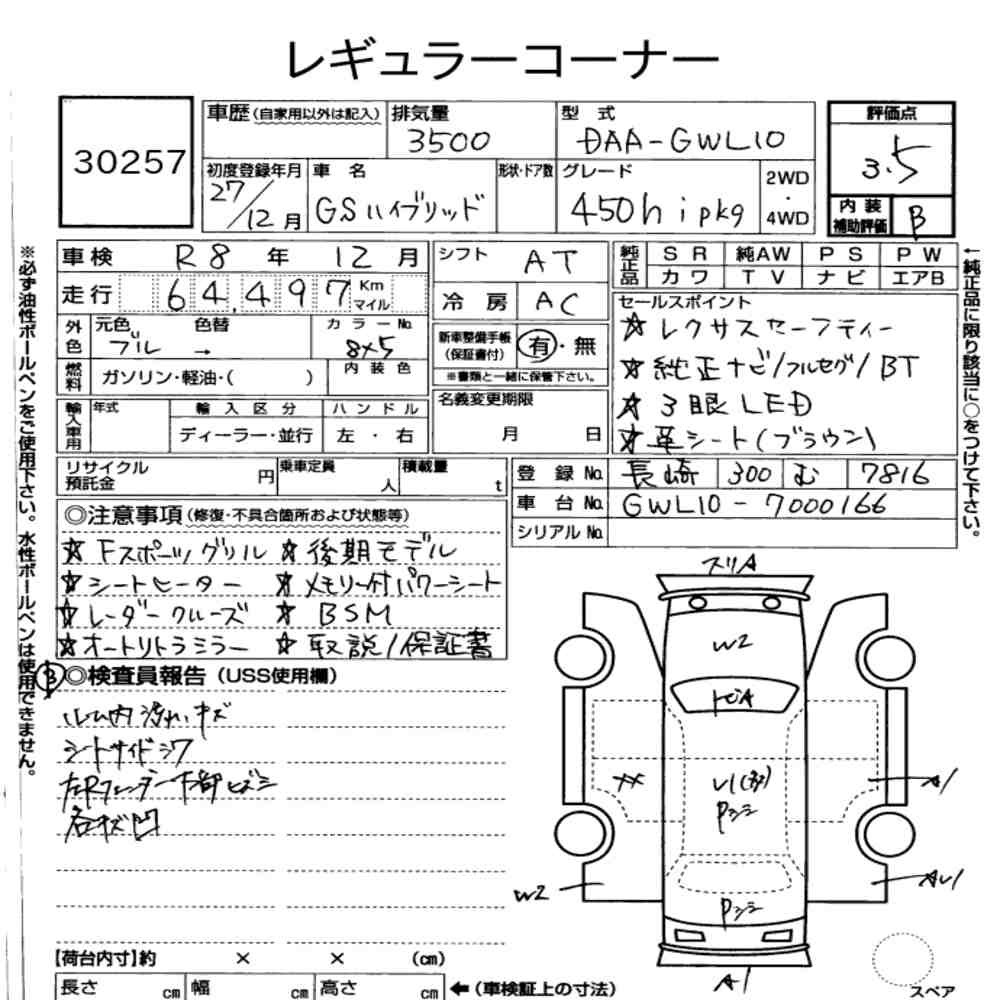 レギュラーコーナー
30257
車歴(自家用以外は記入)
排気量
3500
型 式
DAA-GWL10
評価点
3.5
初度登録年月
27/12月
車 名
GSハイブリッド
形状・ドア数
グレード
450h ipkg
2WD
・
4WD
内 装
補助評価
B
※必ず油性ボールペンをご使用下さい。水性ボールペンは使用できません。
車検 R8 年 12 月
走行 64,497 Km マイル
シフト AT
冷 房 AC
純正品
SR 純AW PS PW
カワ TV ナビ エアB
←純正品に限り該当に○をつけて下さい。
外色
元色 色替
ブル →
カラーNo.
8x5
燃料
ガソリン・軽油・( )
内 装 色
新車整備手帳
(保証書付)
有・無
※書類と一緒に保管下さい。
セールスポイント
☆レクサスセーフティー
☆純正ナビ/フルセグ/BT
☆3眼LED
☆革シート(ブラウン)
輸入車用
年式
輸 入 区 分
ハ ン ド ル
ディーラー・並行
左 ・ 右
名義変更期限
月 日
リサイクル
預託金
円
乗車定員
人
積載量
t
登 録 No. 長崎 300 む 7816
車 台 No. GWL10-7000166
シリアルNo.
◎注意事項(修復・不具合箇所および状態等)
☆Fスポーツグリル ☆後期モデル
☆シートヒーター ☆メモリー付パワーシート
☆レーダークルーズ ☆BSM
☆オートリトラミラー ☆取説/保証書
B ◎検査員報告(USS使用欄)
ルーム内汚れキズ
シートサイドシワ
左Rフェンダー下部ヒズミ
各キズ凹
スリA
W2
トビA
XX
A1
W2
A1
【荷台内寸】約 × × (cm)
長さ cm 幅 cm 高さ cm ←(車検証上の寸法)
スペア